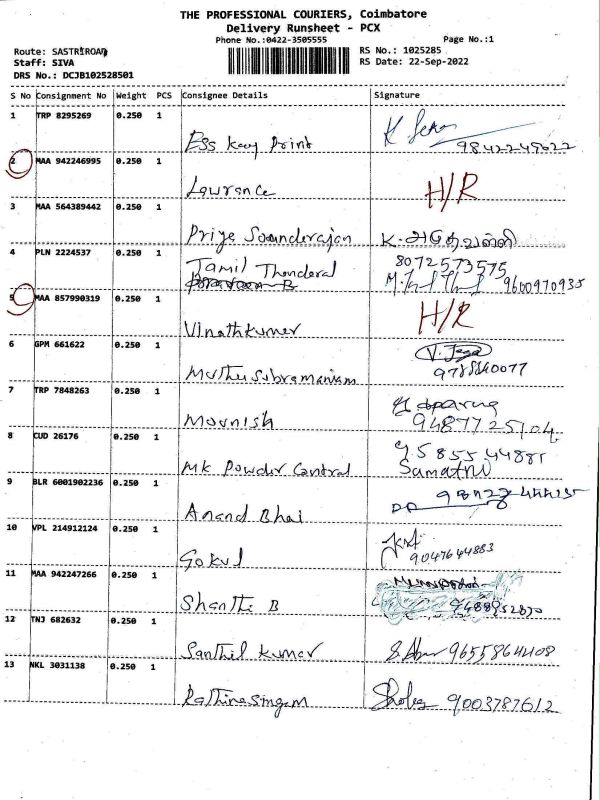 THE PROFESSIONAL COURIERS, Coimbatore
Delivery Runsheet - PCX
Phone No.:0422-3505555 Page No.:1
Route: SASTRIROAD RS No.: 1025285
Staff: SIVA RS Date: 22-Sep-2022
DRS No.: DCJB102528501
S No Consignment No Weight PCS Consignee Details Signature
1 TRP 8295269 0.250 1
Ess Kay Print
2 MAA 942246995 0.250 1
Lawrance H/R
3 MAA 564389442 0.250 1
Priya Sounderajan
4 PLN 2224537 0.250 1 8072573575
Tamil Thenderal 9600970935
5 MAA 857990319 0.250 1
Vinothkumar H/R
6 GPM 661622 0.250 1
Muthusubramaniam
7 TRP 7848263 0.250 1
Mounish
8 CUD 26176 0.250 1
MK Powder Central
9 BLR 6001902236 0.250 1
Anand Bhai
10 VPL 214912124 0.250 1
Gokul 9047644883
11 MAA 942247266 0.250 1
Shanthi B
12 TNJ 682632 0.250 1
Santhil Kumar 9655864408
13 NKL 3031138 0.250 1
Rathinasingam 9003787612